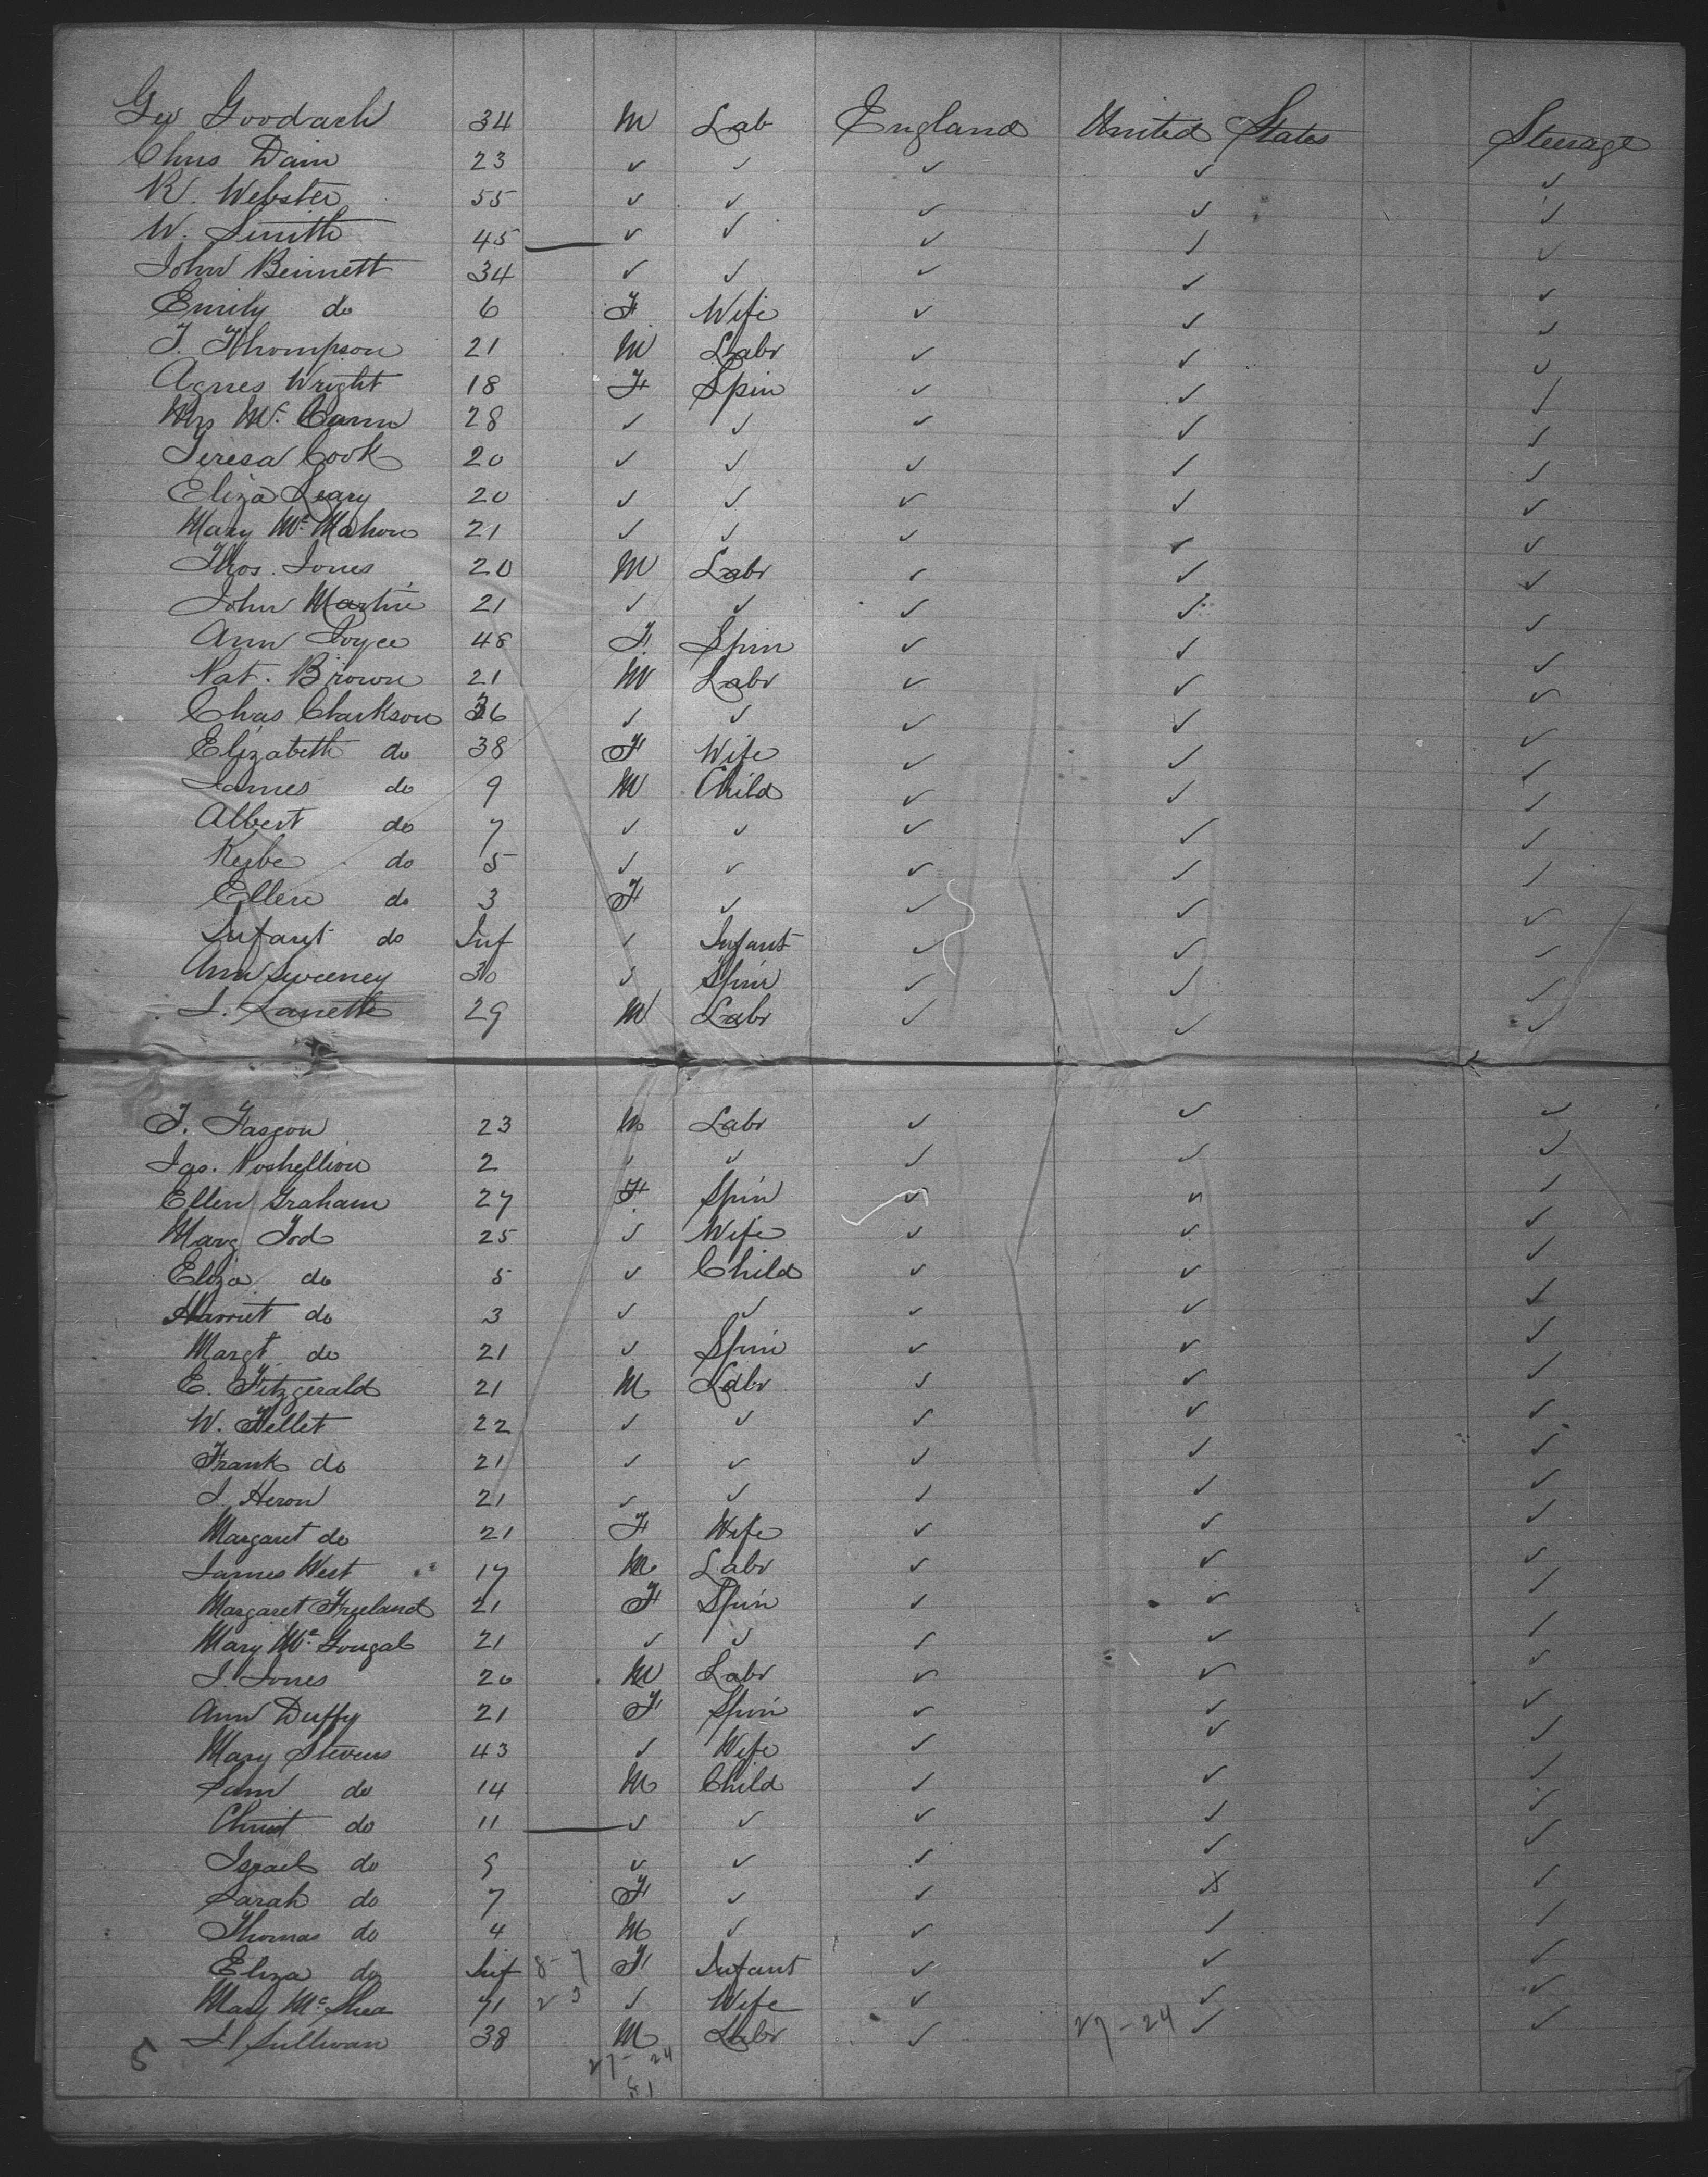 Geo Goodach 34 M Lab England United States Steerage
Chns Dain 23 ✓ ✓ ✓ ✓ ✓
R. Webster 55 ✓ ✓ ✓ ✓ ✓
W. Smith 45 — ✓ ✓ ✓ ✓ ✓
John Bennett 34 ✓ ✓ ✓ ✓ ✓
Emily do 6 F Wife ✓ ✓ ✓
T. Thompson 21 M Labr ✓ ✓ ✓
Agnes Wright 18 F Spin ✓ ✓ ✓
Mrs Mc Cann 28 ✓ ✓ ✓ ✓ ✓
Teresa Cook 20 ✓ ✓ ✓ ✓ ✓
Eliza Leary 20 ✓ ✓ ✓ ✓ ✓
Mary Mc Mahon 21 ✓ ✓ ✓ ✓ ✓
Thos. Jones 20 M Labr ✓ ✓ ✓
John Martin 21 ✓ ✓ ✓ ✓ ✓
Ann Joyce 48 F Spin ✓ ✓ ✓
Pat. Brown 21 M Labr ✓ ✓ ✓
Chas Clarkson 36 ✓ ✓ ✓ ✓ ✓
Elizabeth do 38 F Wife ✓ ✓ ✓
James do 9 M Child ✓ ✓ ✓
Albert do 7 ✓ ✓ ✓ ✓ ✓
do 5 ✓ ✓ ✓ ✓ ✓
Ellen do 3 F ✓ ✓ ✓ ✓
Infant do Inf ✓ Infant ✓ ✓ ✓
Ann Sweeney 30 ✓ Spin ✓ ✓ ✓
J. Lanette 29 M Labr ✓ ✓ ✓
T. Fasgon 23 M Labr ✓ ✓ ✓
Jas. 2 ✓ ✓ ✓ ✓ ✓
Ellen Graham 27 F Spin ✓ ✓ ✓
Marg Tod 25 ✓ Wife ✓ ✓ ✓
Eliza do 5 ✓ Child ✓ ✓ ✓
Harriet do 3 ✓ ✓ ✓ ✓ ✓
Margt do 21 ✓ Spin ✓ ✓ ✓
E. Fitzgerald 21 M Labr ✓ ✓ ✓
W. Tellet 22 ✓ ✓ ✓ ✓ ✓
Frank do 21 ✓ ✓ ✓ ✓ ✓
J. Heron 21 ✓ ✓ ✓ ✓ ✓
Margaret do 21 F Wife ✓ ✓ ✓
James West 17 M Labr ✓ ✓ ✓
Margaret Fryeland 21 F Spin ✓ ✓ ✓
Mary Mc Gougal 21 ✓ ✓ ✓ ✓ ✓
J. Jones 20 M Labr ✓ ✓ ✓
Ann Duffy 21 F Spin ✓ ✓ ✓
Mary Stevens 43 ✓ Wife ✓ ✓ ✓
Sam do 14 M Child ✓ ✓ ✓
Christ do 11 — ✓ ✓ ✓ ✓ ✓
Israel do 9 ✓ ✓ ✓ ✓ ✓
Sarah do 7 F ✓ ✓ ✓ ✓
Thomas do 4 M ✓ ✓ ✓ ✓
Eliza do Inf 8-7 F Infant ✓ ✓ ✓
Mary Mc Shea 71 2 3 ✓ Wife ✓ ✓ ✓
J. Sullivan 38 M Labr ✓ 27-24 ✓ ✓
5 27-24
51